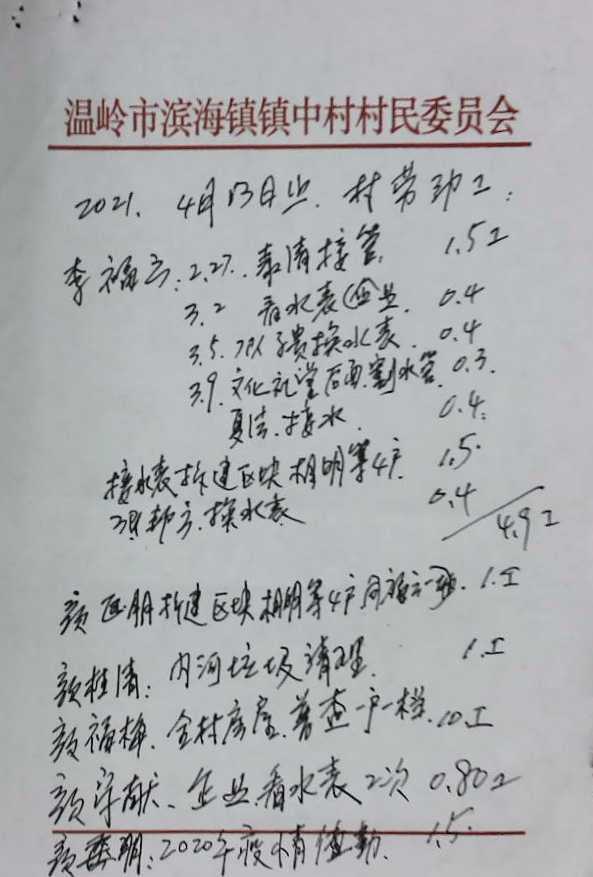 温岭市滨海镇镇中村村民委员会
2021. 4月13日止. 村劳动工:
李福方: 2.27. 泰清接管. 1.5工
3.2 看水表企业. 0.4
3.5. 换水表. 0.4
3.9. 文化礼堂后面割水管. 0.3.
夏法. 接水. 0.4.
接水表拆建区块相明等4户. 1.5.
邦方. 换水表 0.4
4.9工
颜正明拆建区块相明等4户同福方一块. 1.工
颜桂清: 内河垃圾清理. 1.工
颜福梅. 全村房屋. 普查一户一档. 10.工
颜宗献、企业看水表2次 0.80工
颜明: 2020年疫情值勤. 1.5.